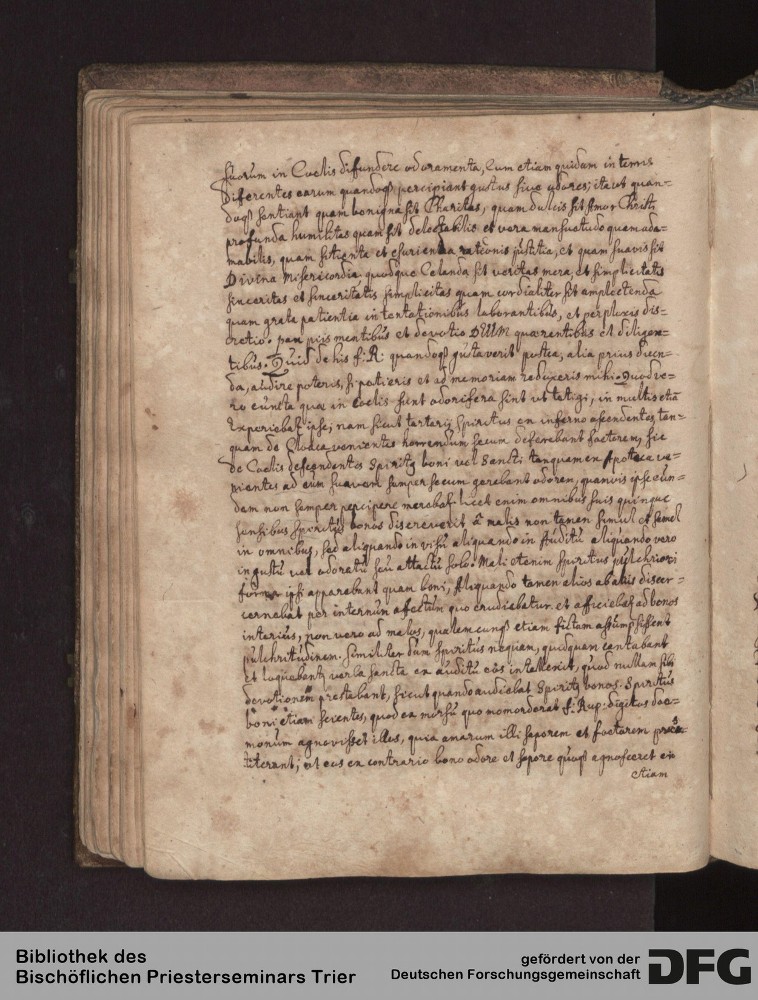 suorum in Coelis difundere odoramenta, Cum etiam quidam in terris
Diferentes earum quandoq percipiant gustus sive odores; ita ut quan-
doq sentiant quam benigna sit Charitas, quam dulcis sit Amor Christi,
profunda humilitas quam sit delectabilis et vera mansuetudo quam ada-
mabilis, quam sitienda et esurienda rationis justitia, et quam suavis sit
Divina Misericordia, quodque Celanda sit veritas mera, et simplicitatis
sinceritas et sinceritatis simplicitas quam cordialiter sit amplectenda
quam grata patientia in tentationibus laborantibus, et perplexis dis-
cretio. pax piis mentibus et devotio DEUM quaerantibus et diligen-
tibus. Quid de his f. R. quandoq gustaverit postea, alia prius dicen-
da, audire poteris, si patieris et ad memoriam reduxeris mihi. Quod ve-
ro cuncta quae in Coelis sunt odorifera sint ut tetigi, in multis etiā
Experiebat ipse; nam sicut tartarij Spiritus ex inferno ascendentes, tan-
quam de Cloaca venientes horrendum secum deferebant foetorem, sic
de Coelis descendentes Spirity boni vel Sancti tanquam ex Apoteca ve-
nientes ad eum suavem semper secum gerebant odorem, quamvis ipse eun-
dem non semper percipere merebat. licet enim omnibus suis quinque
sensibus Spiritus bonos discreverit à malis non tamen simul et semel
in omnibus, sed aliquando in visu aliquando in Auditu aliquando vero
in gustu vel odoratu seu attactu solo. Mali etenim Spiritus pulchriori
forma ipsi apparebant quam boni, Aliquando tamen alios ab aliis discer-
cernebat per internum affectum quo erudiebatur et afficiebat ad bonos
interius, non vero ad malos, qualemcunq etiam fictam assumpsissent
pulchritudinem. Similiter dum Spiritus nequam, quidquam cantabant
et loquebant verba sancta ex auditu eos intellexit, quod nullam sibi
devotionem prestabant, sicut quando audiebat Spirity bonos. Spiritus
boni etiam scientes, quod ea morsu quo momorderat f. Rup. digitos dae-
monum agnovisset illos, quia amarum illi saporem et foetorem
ut eos ex contrario bono odore et sapore quoq agnosceret en
etiam
Bibliothek des
Bischöflichen Priesterseminars Trier
gefördert von der
Deutschen Forschungsgemeinschaft
DFG